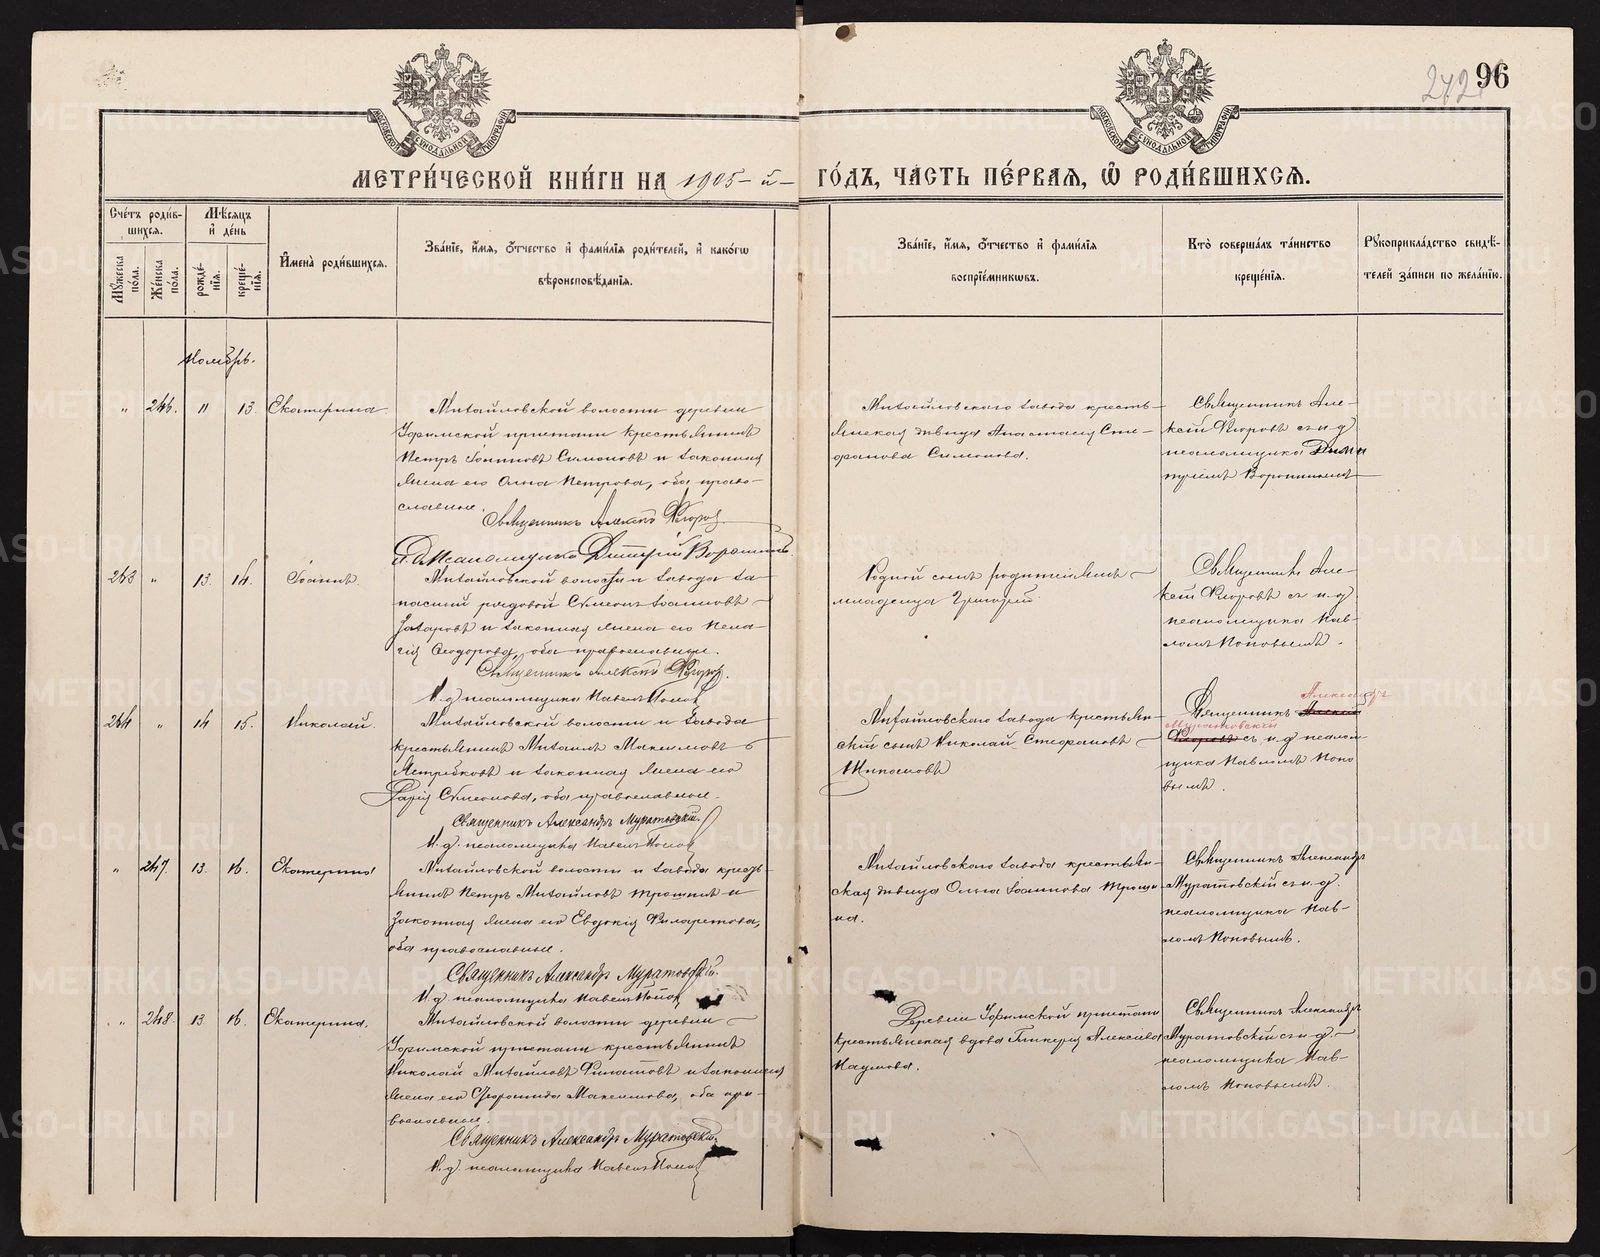 96
272
МОСКОВСКОЙ СѴНОДАЛЬНОЙ ТИПОГРАФІИ
МОСКОВСКОЙ СѴНОДАЛЬНОЙ ТИПОГРАФІИ
МЕТРИ́ЧЕСКОЙ КНИ́ГИ НА 1905-й- ГО́ДЪ, ЧА́СТЬ ПЕ́РВАЯ, Ѡ҆ РОДИ́ВШИХСЯ.
Сче́тъ роди́в-
шихся.
Мѣ́сяцъ
и҆ де́нь
Мꙋ́жеска
по́ла.
Же́нска
по́ла.
рожде́-
нїя.
креще́-
нїя.
И҆мена̀ роди́вшихся.
Зва́нїе, и҆́мя, ѻ҆́тчество и҆ фами́лїя роди́телей, и҆ како́гѡ
вѣроисповѣ́данїя.
Зва́нїе, и҆́мя, ѻ҆́тчество и҆ фами́лїя
воспрїе́мникѡвъ.
Кто̀ соверша́лъ та́инство
креще́нїя.
Рꙋкоприкла́дство свидѣ́-
телей за́писи по жела́нїю.
Ноябрь.
" 246. 11 13. Екатерина
Михайловской волости деревни
Уфимской пристани крестьянинъ
Петръ Іоанновъ Симоновъ и законная
жена его Анна Петрова, оба право-
славные.
Священникъ Алексѣй Флоровъ
И. д. псаломщика Димитрій Воронинъ
Михайловскаго завода кресть-
янская дѣвица Анастасія Сте-
фанова Симонова.
Священникъ Але-
ксѣй Флоровъ съ и. д.
псаломщика Дими
тріемъ Воронинымъ
243 " 13. 14. Іоаннъ.
Михайловской волости и завода за-
пасный рядовой Сѵмеонъ Іоанновъ
Захаровъ и законная жена его Пела-
гія Ѳеодорова, оба православные.
Священникъ Алексѣй Флоровъ.
И. д. псаломщика Павелъ Поповъ
Родной сынъ родителямъ
младенца Григорій.
Священникъ Але-
ксѣй Флоровъ съ и. д.
псаломщика Пав-
ломъ Поповымъ.
244 " 14 15. Николай.
Михайловской волости и завода
крестьянинъ Михаилъ Максимовъ
Ястребковъ и законная жена его
Дарія Сѵмеонова, оба православные.
Священникъ Александръ Муратовскій.
И. д. псаломщика Павелъ Поповъ
Михайловскаго завода крестьян-
скій сынъ Николай Стефановъ
Шипановъ
Александръ
Священникъ Алексѣй
Муратовскій
Флоровъ съ и. д. псалом-
щика Павломъ Попо
вымъ.
" 247. 13. 16. Екатерина
Михайловской волости и завода кресть-
янинъ Петръ Михайловъ Трошинъ и
законная жена его Евдокія Филаретова,
оба православные.
Священникъ Александръ Муратовскій.
И. д. псаломщика Павелъ Поповъ
Михайловскаго завода крестьян-
ская дѣвица Ольга Іоаннова Троши
на.
Священникъ Александръ
Муратовскій съ и. д.
псаломщика Пав-
ломъ Поповымъ.
" 248. 13. 16. Екатерина.
Михайловской волости деревни
Уфимской пристани крестьянинъ
Николай Михайловъ Филатовъ и законная
жена его Максимова, оба пра-
вославные.
Священникъ Александръ Муратовскій.
И. д. псаломщика Павелъ Поповъ
Деревни Уфимской пристани
крестьянская вдова Гликерія Алексѣева
Наумова.
Священникъ Александръ
Муратовскій съ и. д.
псаломщика Пав-
ломъ Поповымъ.
METRIKI.GASO-URAL.RU